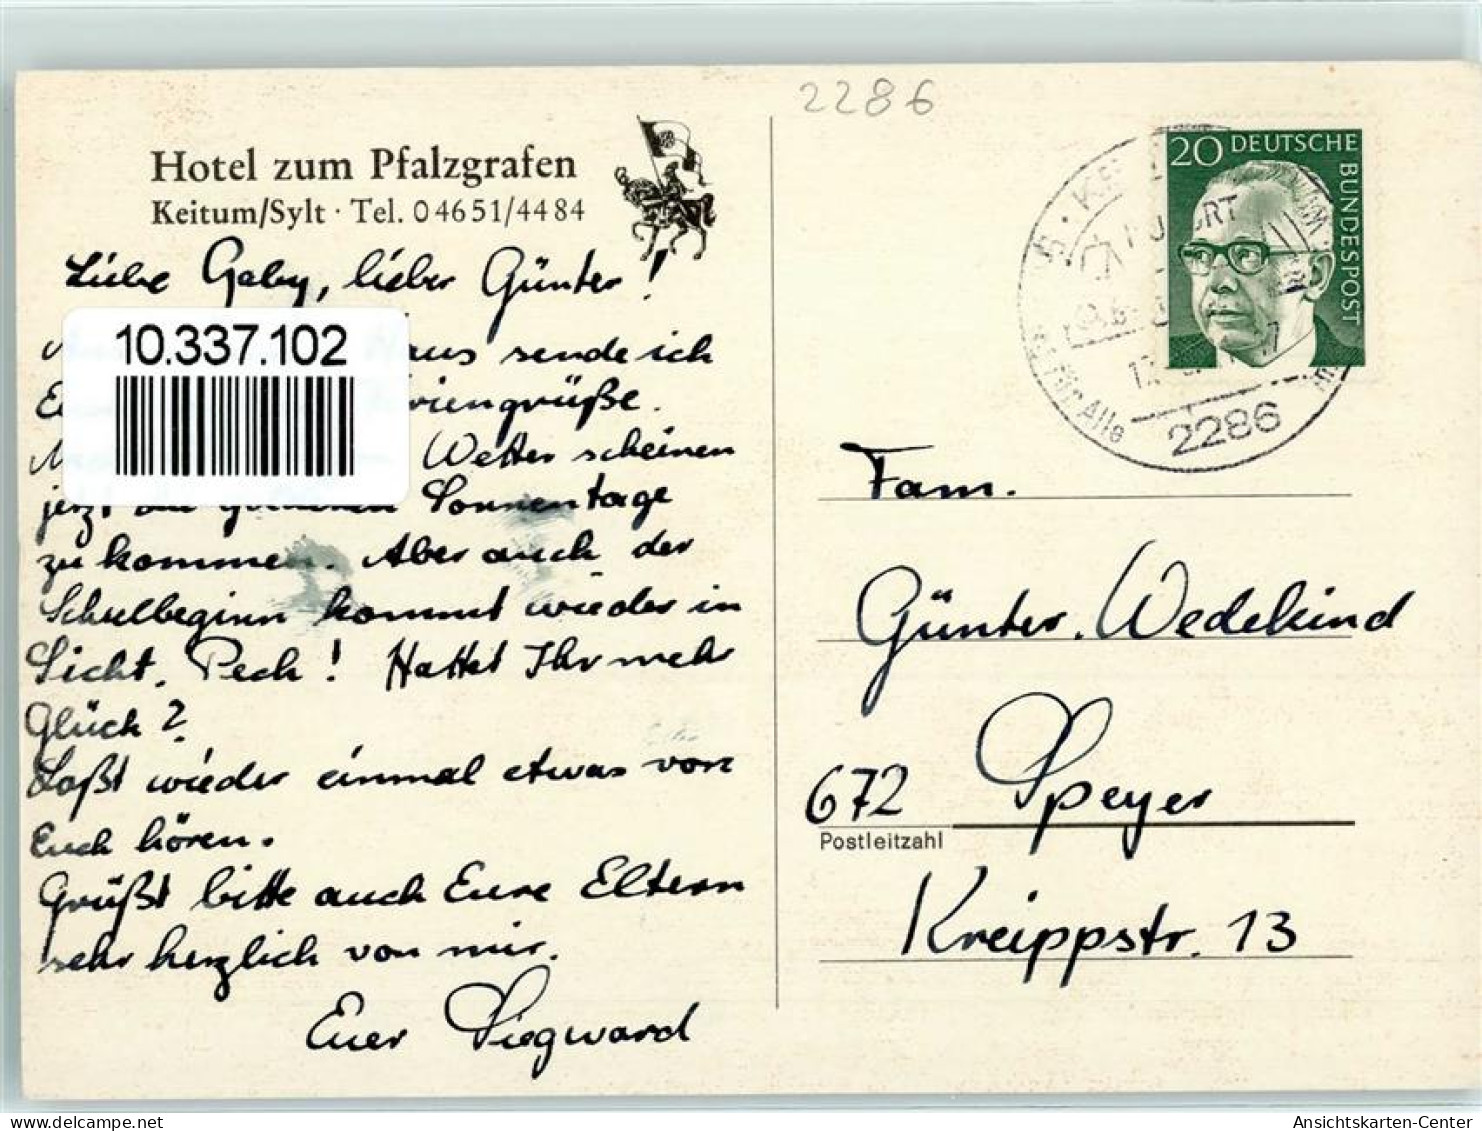 2286
Hotel zum Pfalzgrafen
Keitum/Sylt · Tel. 0 46 51/44 84
Liebe Gaby, lieber Günter!
10.337.102
aus sende ich
riengrüße.
Wetter scheinen
jetzt die Sonnentage
zu kommen. Aber auch der
Schulbeginn kommt wieder in
Sicht. Pech! Hattet Ihr mehr
Glück?
Laßt wieder einmal etwas von
Euch hören.
Grüßt bitte auch Eure Eltern
sehr herzlich von mir.
Euer Siegward
20 DEUTSCHE
BUNDESPOST
für Alle
2286
Fam.
Günter Wedekind
672 Speyer
Postleitzahl
Kneippstr. 13
Ansichtskarten-Center